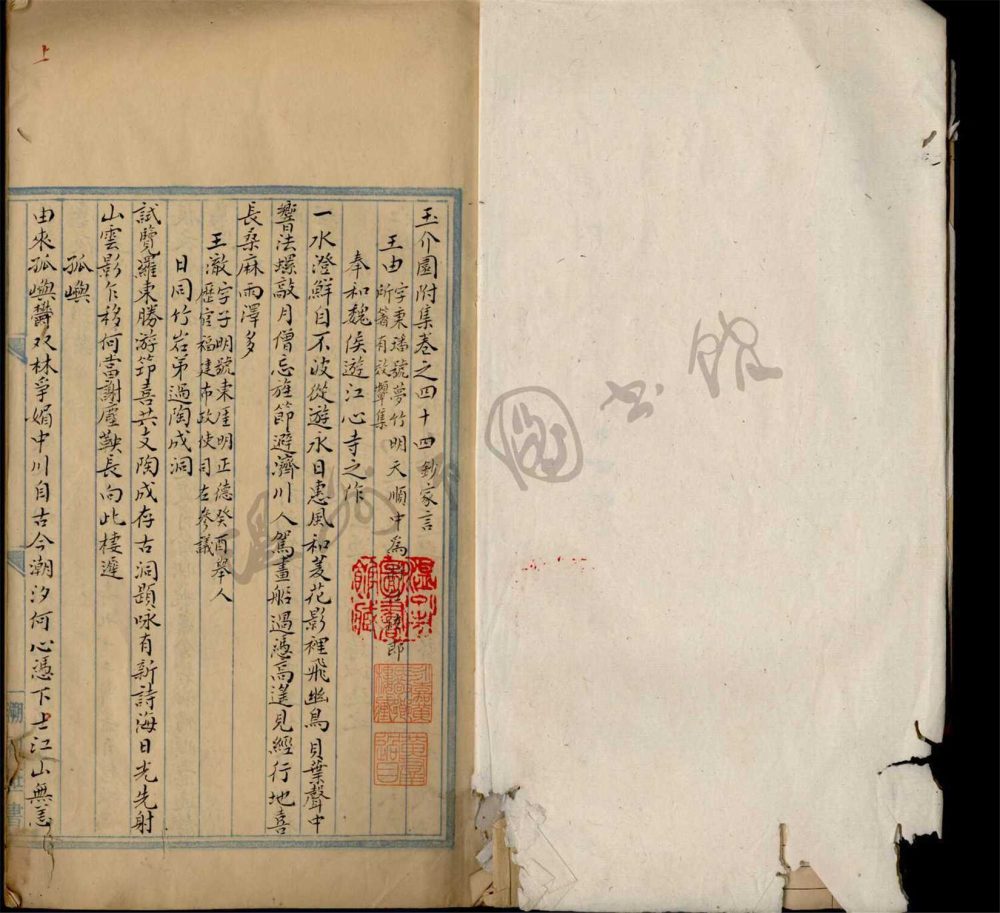 上
玉介園附集卷之四十四鈔家言
王由字東璠號夢竹明天順中為郎
所著有欬蕈集
奉和魏侯遊江心寺之作
一水澄鮮目不波從遊永日惠風和菱花影裡飛幽鳥貝葉聲中
響法螺敲月僧忘旌節避濟川人駕畫船過憑高遙見經行地喜
長桑麻雨澤多
王澈字子明號東厓明正德癸酉舉人
歷官福建布政使司左參議
日同竹岩弟過陶成洞
試覽羅東勝游筇喜共支陶成存古洞題咏有新詩海日光先射
山雲影乍移何當謝塵鞅長向此棲遲
孤嶼
由來孤嶼欝双林爭媚中川自古今潮汐何心憑下上江山無恙
溫州
圖書
館藏
圖書館